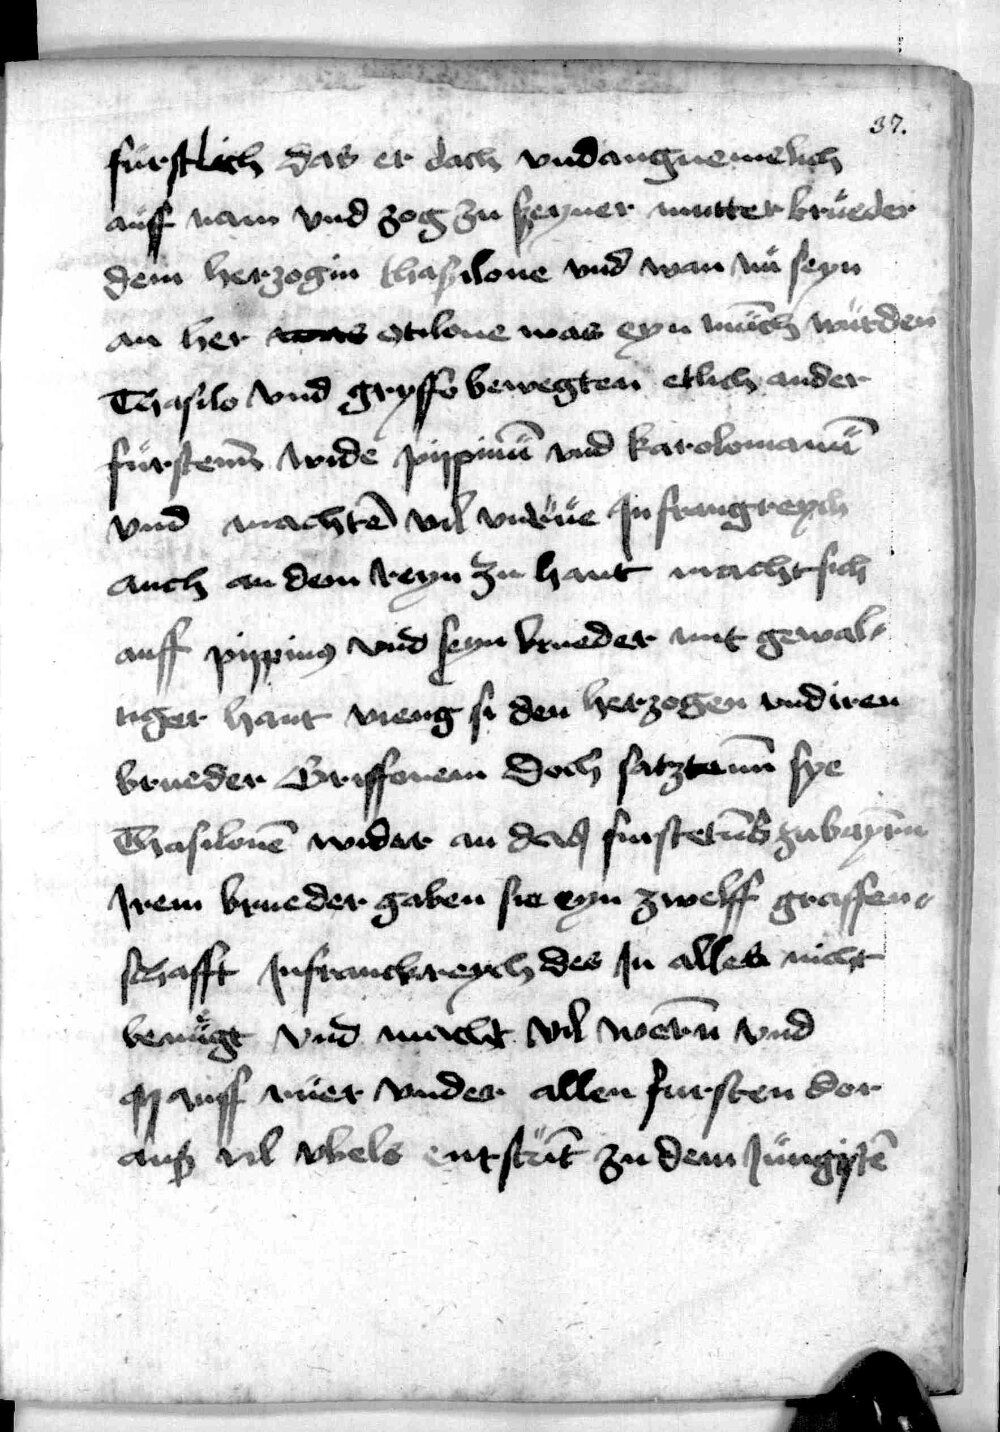 37.
fürstlich das er doch vndangnemelich
auff nam vnd zog zu seyner mutter brüeder
dem herzogin thasilone vnd wan nü seyn
an her was otilone was eyn münch würden
Thasilo vnd gryffo bewegten etlich ander
fürstenn wide pippinū vnd karolomanū
vnd machtē vil vnrüe Jn frangreych
auch an dem reyn zu hant macht sich
auff pippinus vnd seyn brueder mit gewal-
tiger hant vieng si den herzogen vnd iren
brueder Griffonem doch satztenn sye
Thasilonē wider an das furstetūb zu bayrn
Jrem brueder gaben sie eyn zwelff graffen-
schafft Jn franckreych des Jn alles nicht
benügt vnd macht vil wern vnd
auff rüer vnder allen fursten dor
auß vil vbels entstüt zu dem Jüngstē